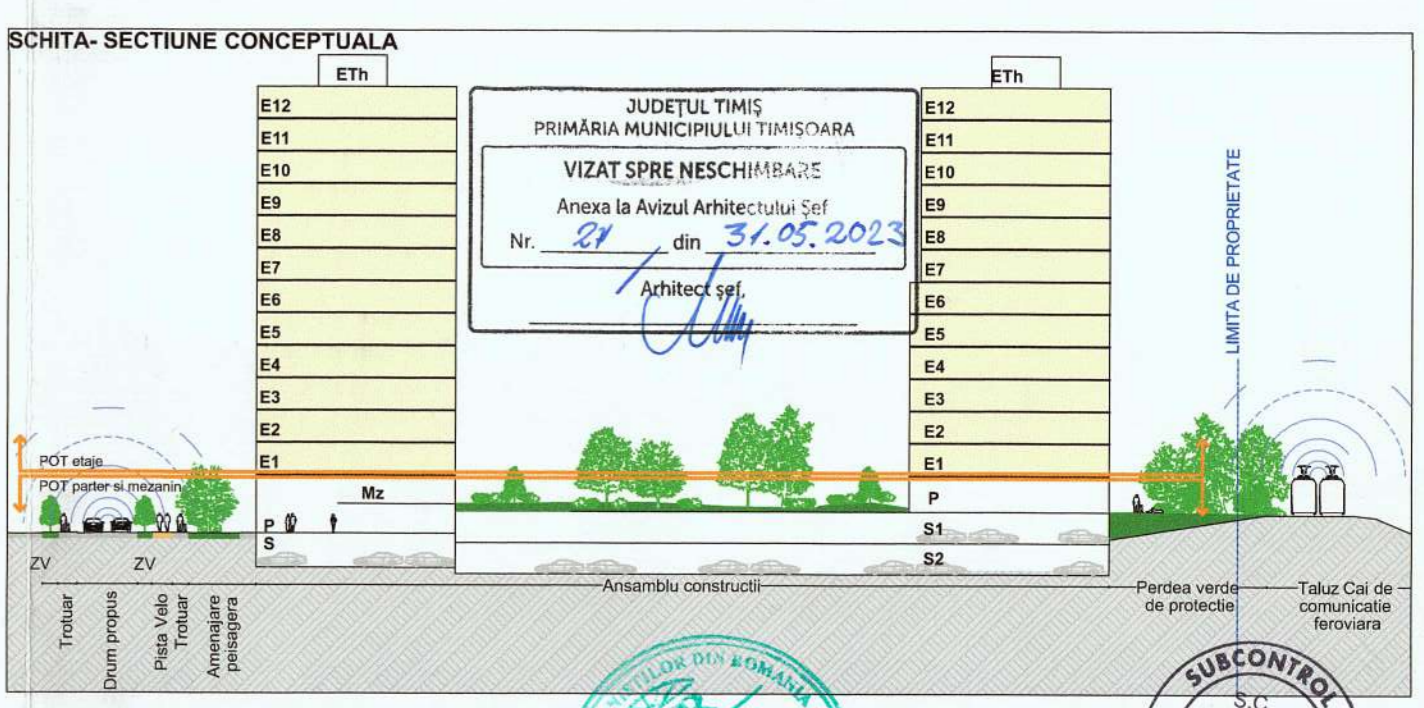 SCHITA- SECTIUNE CONCEPTUALA
ETh
E12
E11
E10
E9
E8
E7
E6
E5
E4
E3
E2
E1
Mz
P
S
POT etaje
POT parter si mezanin
JUDEȚUL TIMIȘ
PRIMĂRIA MUNICIPIULUI TIMIȘOARA
VIZAT SPRE NESCHIMBARE
Anexa la Avizul Arhitectului Șef
Nr. din 31.05.2023
Arhitect șef,
ETh
E12
E11
E10
E9
E8
E7
E6
E5
E4
E3
E2
E1
P
S1
S2
LIMITA DE PROPRIETATE
ZV
ZV
Trotuar
Drum propus
Pista Velo
Trotuar
Amenajare
peisagera
Ansamblu constructii
Perdea verde
de protectie
Taluz Cai de
comunicatie
feroviara
DIN ROMANIA
SUBCONTROL
S.C.